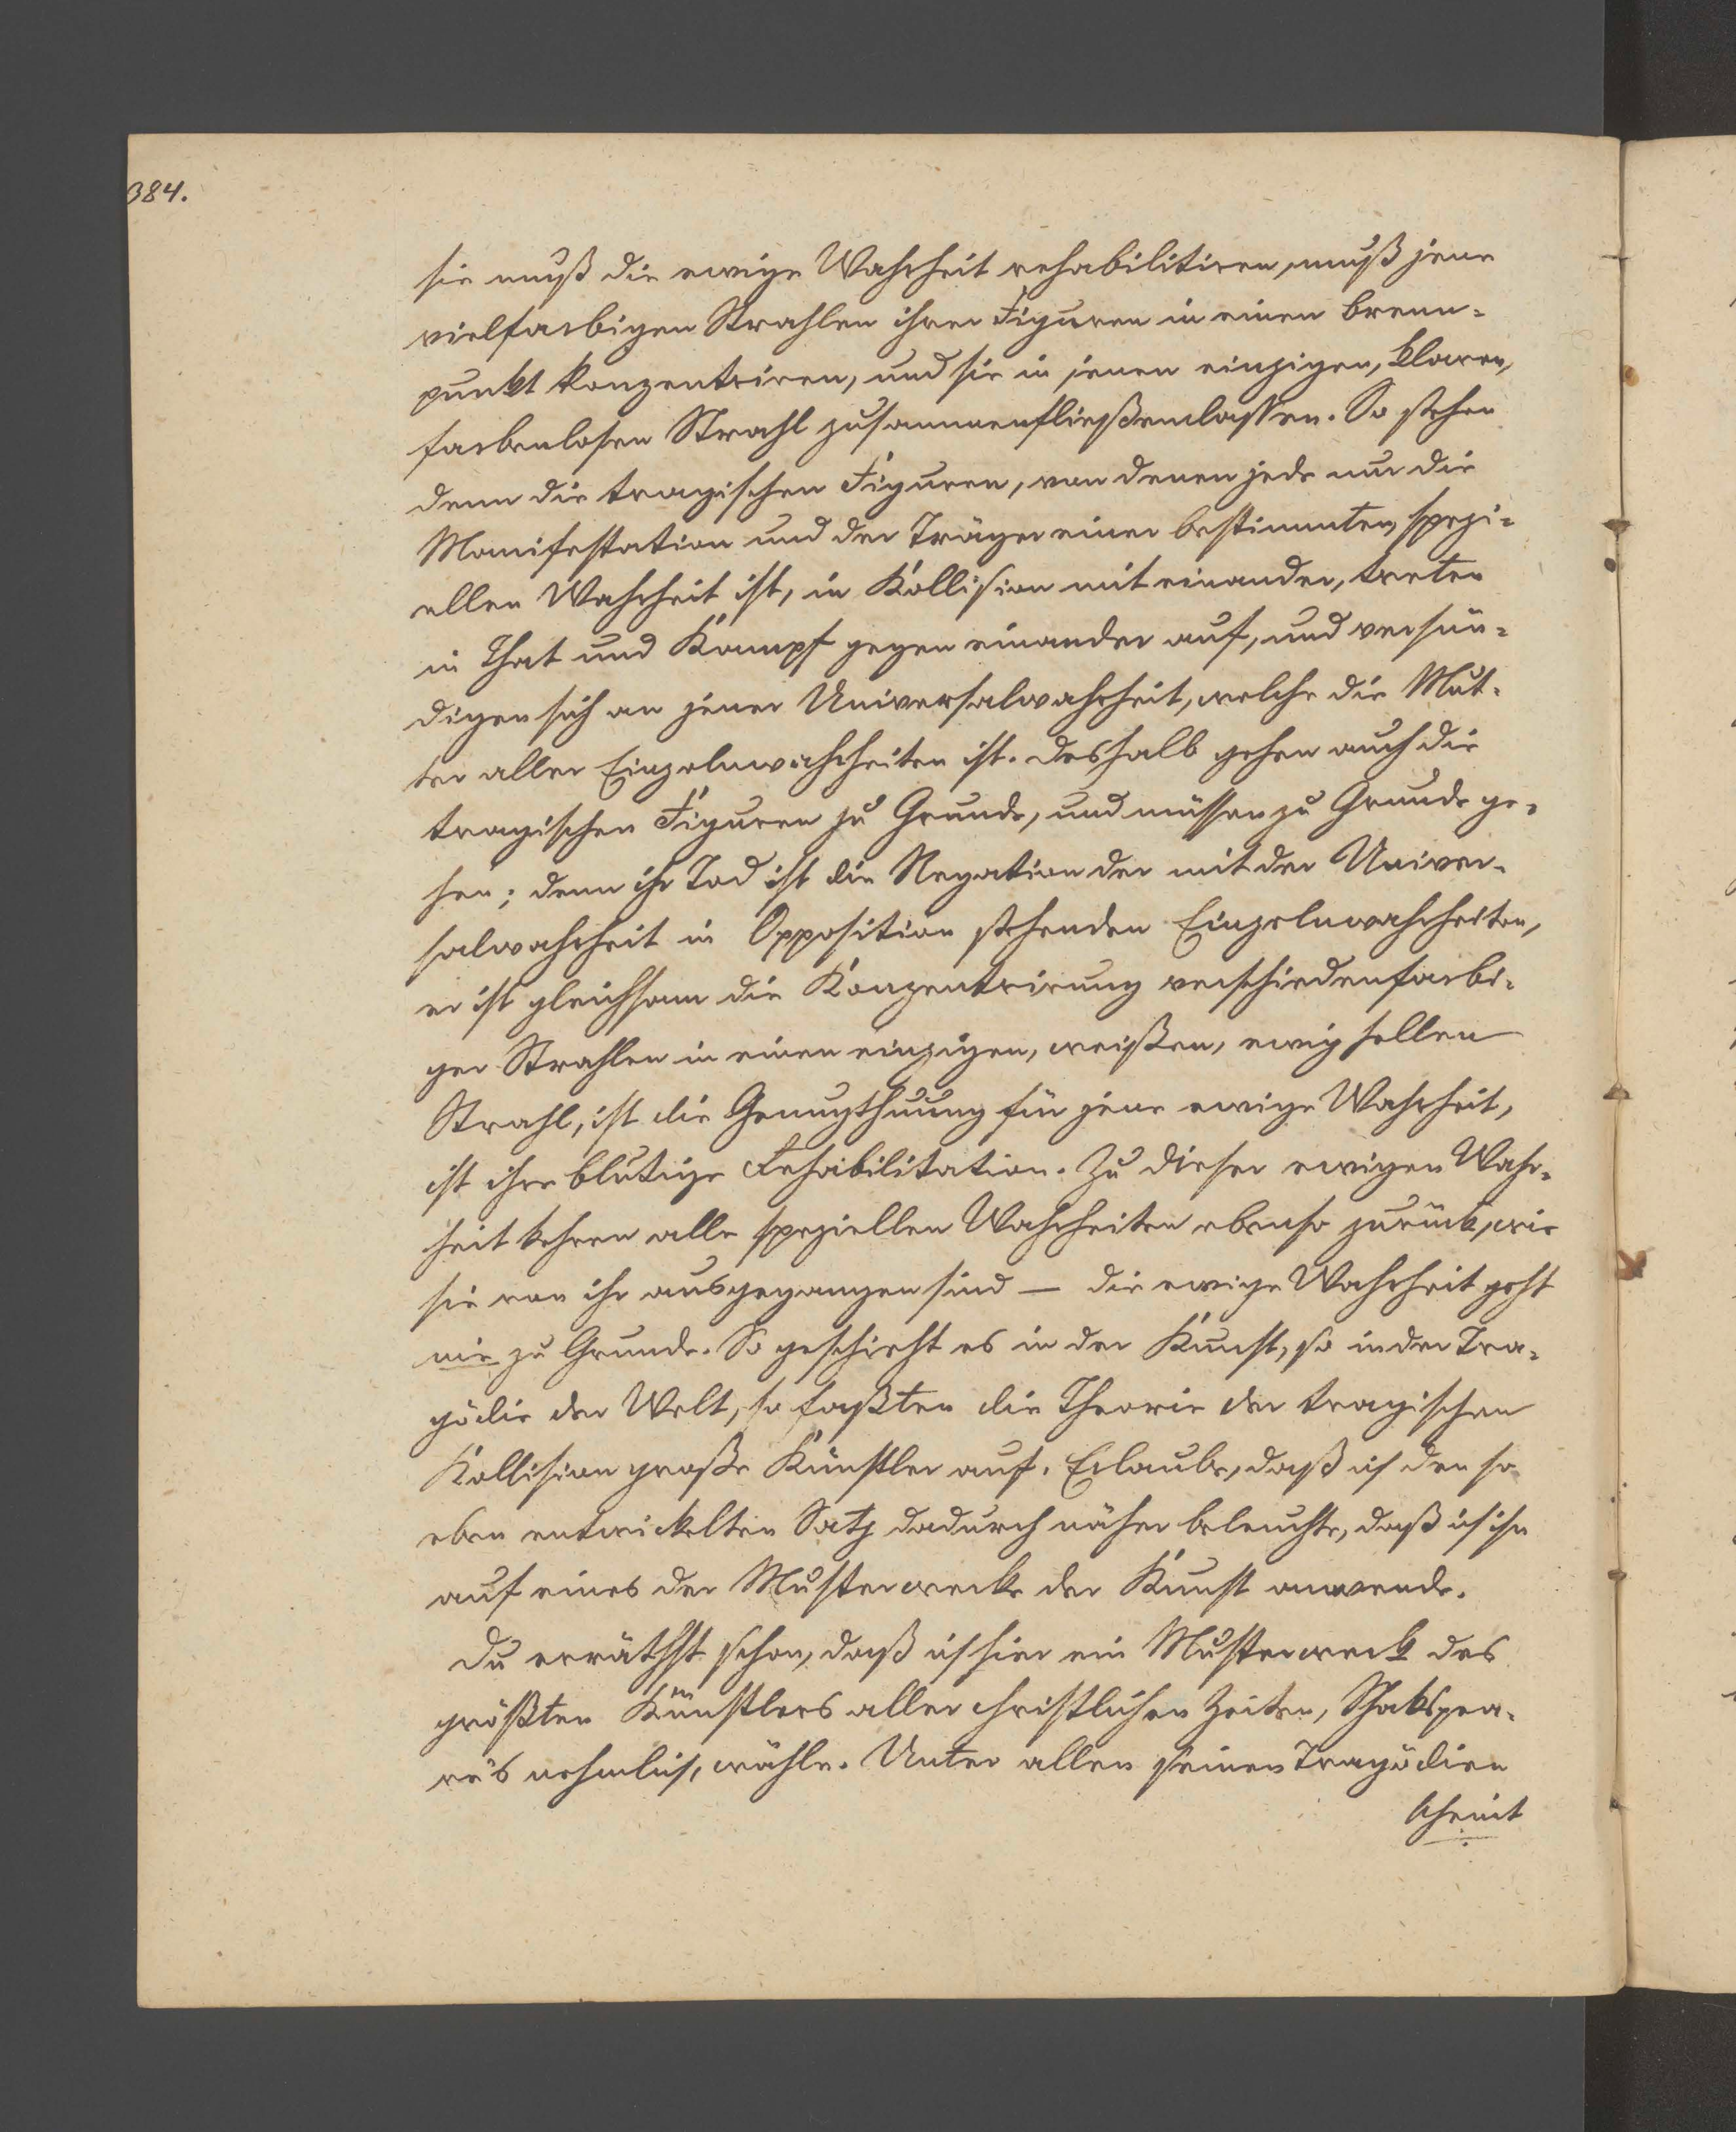 384.
sie muß die ewige Wahrheit rehabilitiren, muß jene
vielfarbigen Strahlen ihrer Figuren in einen Brenn-
punkt konzentriren, und sie in jenen einzigen, klaren,
farbenlosen Strahl zusammenfließenlassen. So stehen
denn die tragischen Figuren, von denen jede nur die
Manifestation und der Träger einer bestimmten, spezi-
ellen Wahrheit ist, in Kollision mit einander, treten
in That und Kampf gegen einander auf, und versün-
digen sich an jener Universalwahrheit, welche die Mut-
ter aller Einzelnwahrheiten ist. Deshalb gehen auch die
tragischen Figuren zu Grunde, und müssen zu Grunde ge-
hen; denn ihr Tod ist die Negation der mit der Univer-
salwahrheit in Opposition stehenden Einzelnwahrheiten,
er ist gleichsam die Konzentrirung verschiedenfarbi-
ger Strahlen in einen einzigen, weißen, ewig hellen
Strahl, ist die Genugthuung für jene ewige Wahrheit,
ist ihre blutige Rehabilitation. Zu dieser ewigen Wahr-
heit kehren alle speziellen Wahrheiten ebenso zurück, wie
sie von ihr ausgegangen sind — die ewige Wahrheit geht
nie zu Grunde. So geschieht es in der Kunst, so in der Tra-
gödie der Welt, so faßten die Theorie der tragischen
Kollision große Künstler auf. Erlaube, daß ich den so
eben entwickelten Satz dadurch näher beleuchte, daß ich ihn
auf eines der Musterwerke der Kunst anwende.
Du erräthst schon, daß ich hier ein Musterwerk des
größten Künstlers aller christlichen Zeiten, Shakspea-
re's nehmlich, wähle. Unter allen seinen Tragödien
scheint